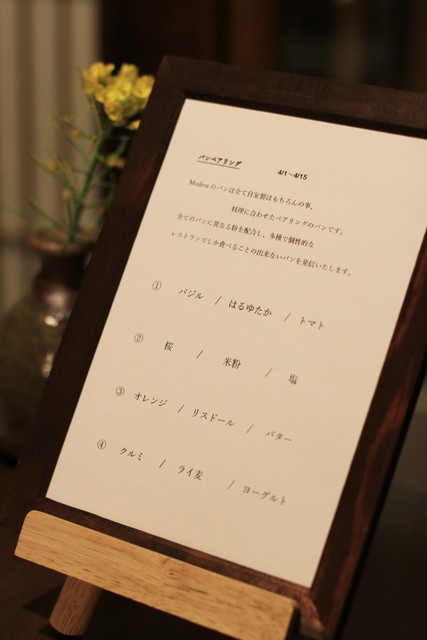 パンペアリング 4/1~4/15
Modestのパンは全て自家製はもちろんの事、
料理に合わせたペアリングのパンです。
全てのパンに異なる粉を配合し、多種で個性的な
レストランでしか食べることの出来ないパンを発信いたします。
① バジル / はるゆたか / トマト
② 桜 / 米粉 / 塩
③ オレンジ / リスドール / バター
④ クルミ / ライ麦 / ヨーグルト